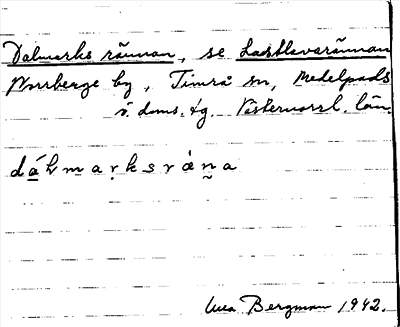 Dalmarks rännan, se Lastblavarännan
Norrberge by, Timrå sn, Medelpads
ö. doms. tg. Västernorrl. län.
dáhmarksräna
Bergman 1942.